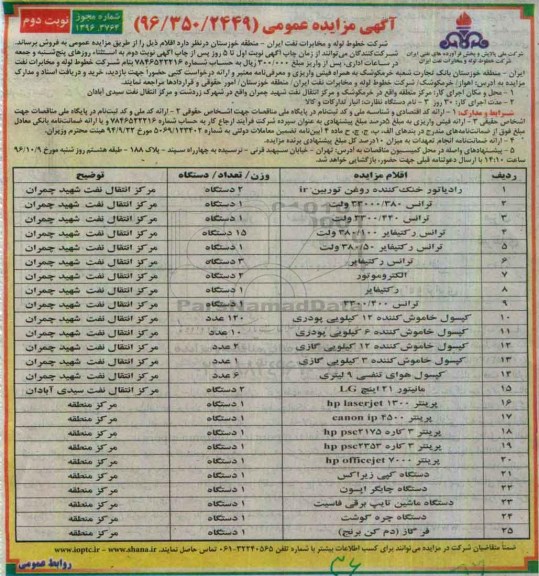 آگهی مزایده عمومی (۹۶/۳۵۰/۲۴۴۹)
شماره مجوز ۱۳۹۶.۳۷۶۲
نوبت دوم
شرکت ملی پالایش و پخش فرآورده های نفتی ایران
شرکت خطوط لوله و مخابرات نفت ایران
شرکت خطوط لوله و مخابرات نفت ایران – منطقه خوزستان درنظر دارد اقلام ذیل را از طریق مزایده عمومی به فروش برساند.
شرکت‌کنندگان می‌توانند از زمان چاپ آگهی نوبت اول تا ۵ روز پس از چاپ آگهی نوبت دوم به استثناء روزهای پنج‌شنبه و جمعه
در ساعات اداری، پس از واریز مبلغ ۳۰۰/۰۰۰ ریال به حساب شماره ۷۸۴۶۵۲۲۲۱۶ بنام شرکت خطوط لوله و مخابرات نفت
ایران – منطقه خوزستان بانک تجارت شعبه خرمکوشک به همراه فیش واریزی و معرفی‌نامه معتبر و ارائه درخواست کتبی حضورا جهت بازدید، خرید و دریافت اسناد و مدارک
مزایده به آدرس: اهواز، خرمکوشک، شرکت خطوط لوله و مخابرات نفت ایران منطقه خوزستان/ امور حقوقی و قراردادها مراجعه نمایند.
۱ – محل و مکان اجرای کار: مرکز منطقه واقع در خرمکوشک و مرکز انتقال نفت شهید چمران واقع در شهرک زردشت و مرکز انتقال نفت سیدی آبادان
۲ – مدت اجرای کار: ۳۰ روز ۳ – نام دستگاه نظارت: انبار تدارکات و کالا
شرایط و مدارک: ۱ – ارائه کد اقتصادی و شناسه ملی و کد ثبت‌نام در پایگاه ملی مناقصات جهت اشخاص حقوقی ۲ – ارائه کد ملی و کد ثبت‌نام در پایگاه ملی مناقصات جهت
اشخاص حقیقی ۳ – ارائه فیش واریزی به مبلغ ۵درصد مبلغ پیشنهادی به عنوان سپرده شرکت در فرآیند ارجاع کار به حساب شماره ۷۸۴۶۵۲۲۲۱۶ و یا ارائه ضمانت‌نامه بانکی معادل
مبلغ فوق از ضمانت‌نامه‌های مندرج در بندهای الف، ب، ج، ح ماده ۴ آیین‌نامه تضمین معاملات دولتی به شماره ۱۲۳۴۰۲/ت۵۰۶۵۹ه مورخ ۹۴/۹/۲۲ هیئت محترم وزیران.
۴ – ارائه ضمانت‌نامه انجام تعهدات به میزان ۱۰درصد کل مبلغ پیشنهادی برنده مزایده.
۵ – پیشنهادهای واصله در محل کمیسیون مناقصات به آدرس: تهران – خیابان سپهبد قرنی – نرسیده به چهارراه سمیه – پلاک ۱۸۸ – طبقه هشتم روز شنبه مورخ ۹۶/۱۰/۹
ساعت ۱۴:۱۰ با ارسال دعوتنامه قبلی جهت حضور، بازگشایی خواهد شد.
ردیف اقلام مزایده وزن/ تعداد/ دستگاه توضیح
۱ رادیاتور خنک‌کننده روغن توربین ir ۲ دستگاه مرکز انتقال نفت شهید چمران
۲ ترانس ۳۳۰۰۰/۳۸۰ ولت ۱ دستگاه مرکز انتقال نفت شهید چمران
۳ ترانس ۳۳۰۰/۴۲۰ ولت ۱ دستگاه مرکز انتقال نفت شهید چمران
۴ ترانس رکتیفایر ۳۸۰/۱۰۰ ولت ۱۵ دستگاه مرکز انتقال نفت شهید چمران
۵ ترانس رکتیفایر ۳۸۰/۵۰ ولت ۱ دستگاه مرکز انتقال نفت شهید چمران
۶ ترانس رکتیفایر ۳ دستگاه مرکز انتقال نفت شهید چمران
۷ الکتروموتور ۲ دستگاه مرکز انتقال نفت شهید چمران
۸ رکتیفایر ۱ دستگاه مرکز انتقال نفت شهید چمران
۹ ترانس ۳۳۰۰/۴۰۰ ۱ دستگاه مرکز انتقال نفت شهید چمران
۱۰ کپسول خاموش‌کننده ۱۲ کیلویی پودری ۱۳۰ عدد مرکز انتقال نفت شهید چمران
۱۱ کپسول خاموش‌کننده ۶ کیلویی پودری ۱۰ عدد مرکز انتقال نفت شهید چمران
۱۲ کپسول خاموش‌کننده ۱۲ کیلویی گازی ۲ عدد مرکز انتقال نفت شهید چمران
۱۳ کپسول خاموش‌کننده ۳ کیلویی گازی ۱ عدد مرکز انتقال نفت شهید چمران
۱۴ کپسول هوای تنفسی ۹ لیتری ۶ عدد مرکز انتقال نفت شهید چمران
۱۵ مانیتور ۲۱اینچ LG ۲ دستگاه مرکز انتقال نفت سیدی آبادان
۱۶ پرینتر hp laserjet ۱۳۰۰ ۱ مرکز منطقه
۱۷ پرینتر canon ip ۴۵۰۰ ۱ مرکز منطقه
۱۸ پرینتر ۳ کاره hp psc۲۱۷۵ ۱ مرکز منطقه
۱۹ پرینتر ۳ کاره hp psc۲۳۵۳ ۱ مرکز منطقه
۲۰ پرینتر hp officejet ۷۰۰۰ ۱ مرکز منطقه
۲۱ دستگاه کپی زیراکس ۱ مرکز منطقه
۲۲ دستگاه چاپگر اپسون ۱ مرکز منطقه
۲۳ دستگاه ماشین تایپ برقی فاسیت ۱ مرکز منطقه
۲۴ دستگاه چره گوشت ۱ مرکز منطقه
۲۵ فر گاز (دم کن برنج) ۱ مرکز منطقه
ضمنا متقاضیان شرکت در مزایده می‌توانند برای کسب اطلاعات بیشتر با شماره تلفن ۳۲۲۴۰۵۶۵-۰۶۱ تماس حاصل نمایند. www.ioptc.ir – www.shana.ir
روابط عمومی
۳۶